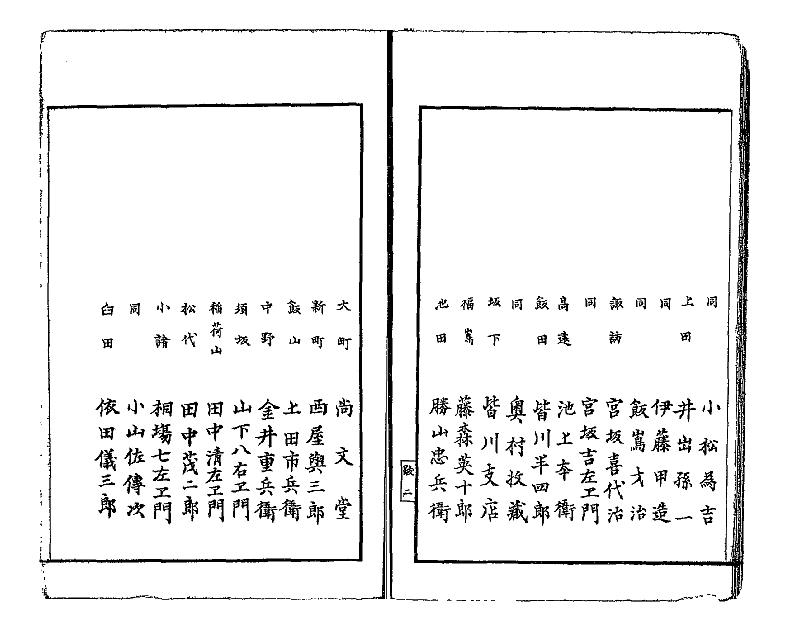 同 小松為吉
上田 井出孫一
同 伊藤甲造
同 飯嶌才治
諏訪 宮坂喜代治
同 宮坂吉左ヱ門
高遠 池上奉衛
飯田 皆川半四郎
同 奥村收藏
坂下 皆川支店
福嶌 藤森英十郎
池田 勝山忠兵衞
跋 二
大町 尚文堂
新町 西屋與三郎
飯山 土田市兵衞
中野 金井重兵衞
須坂 山下八右ヱ門
稲荷山 田中清左ヱ門
松代 田中茂二郎
小諸 相塲七左ヱ門
同 小山佐傳次
臼田 依田儀三郎